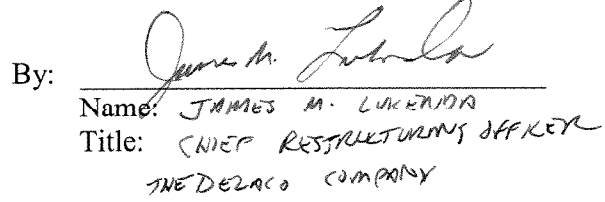 By: James M. Lukenda
Name: JAMES M. LUKENDA
Title: CHIEF RESTRUCTURING OFFICER
THE DEZACO COMPANY